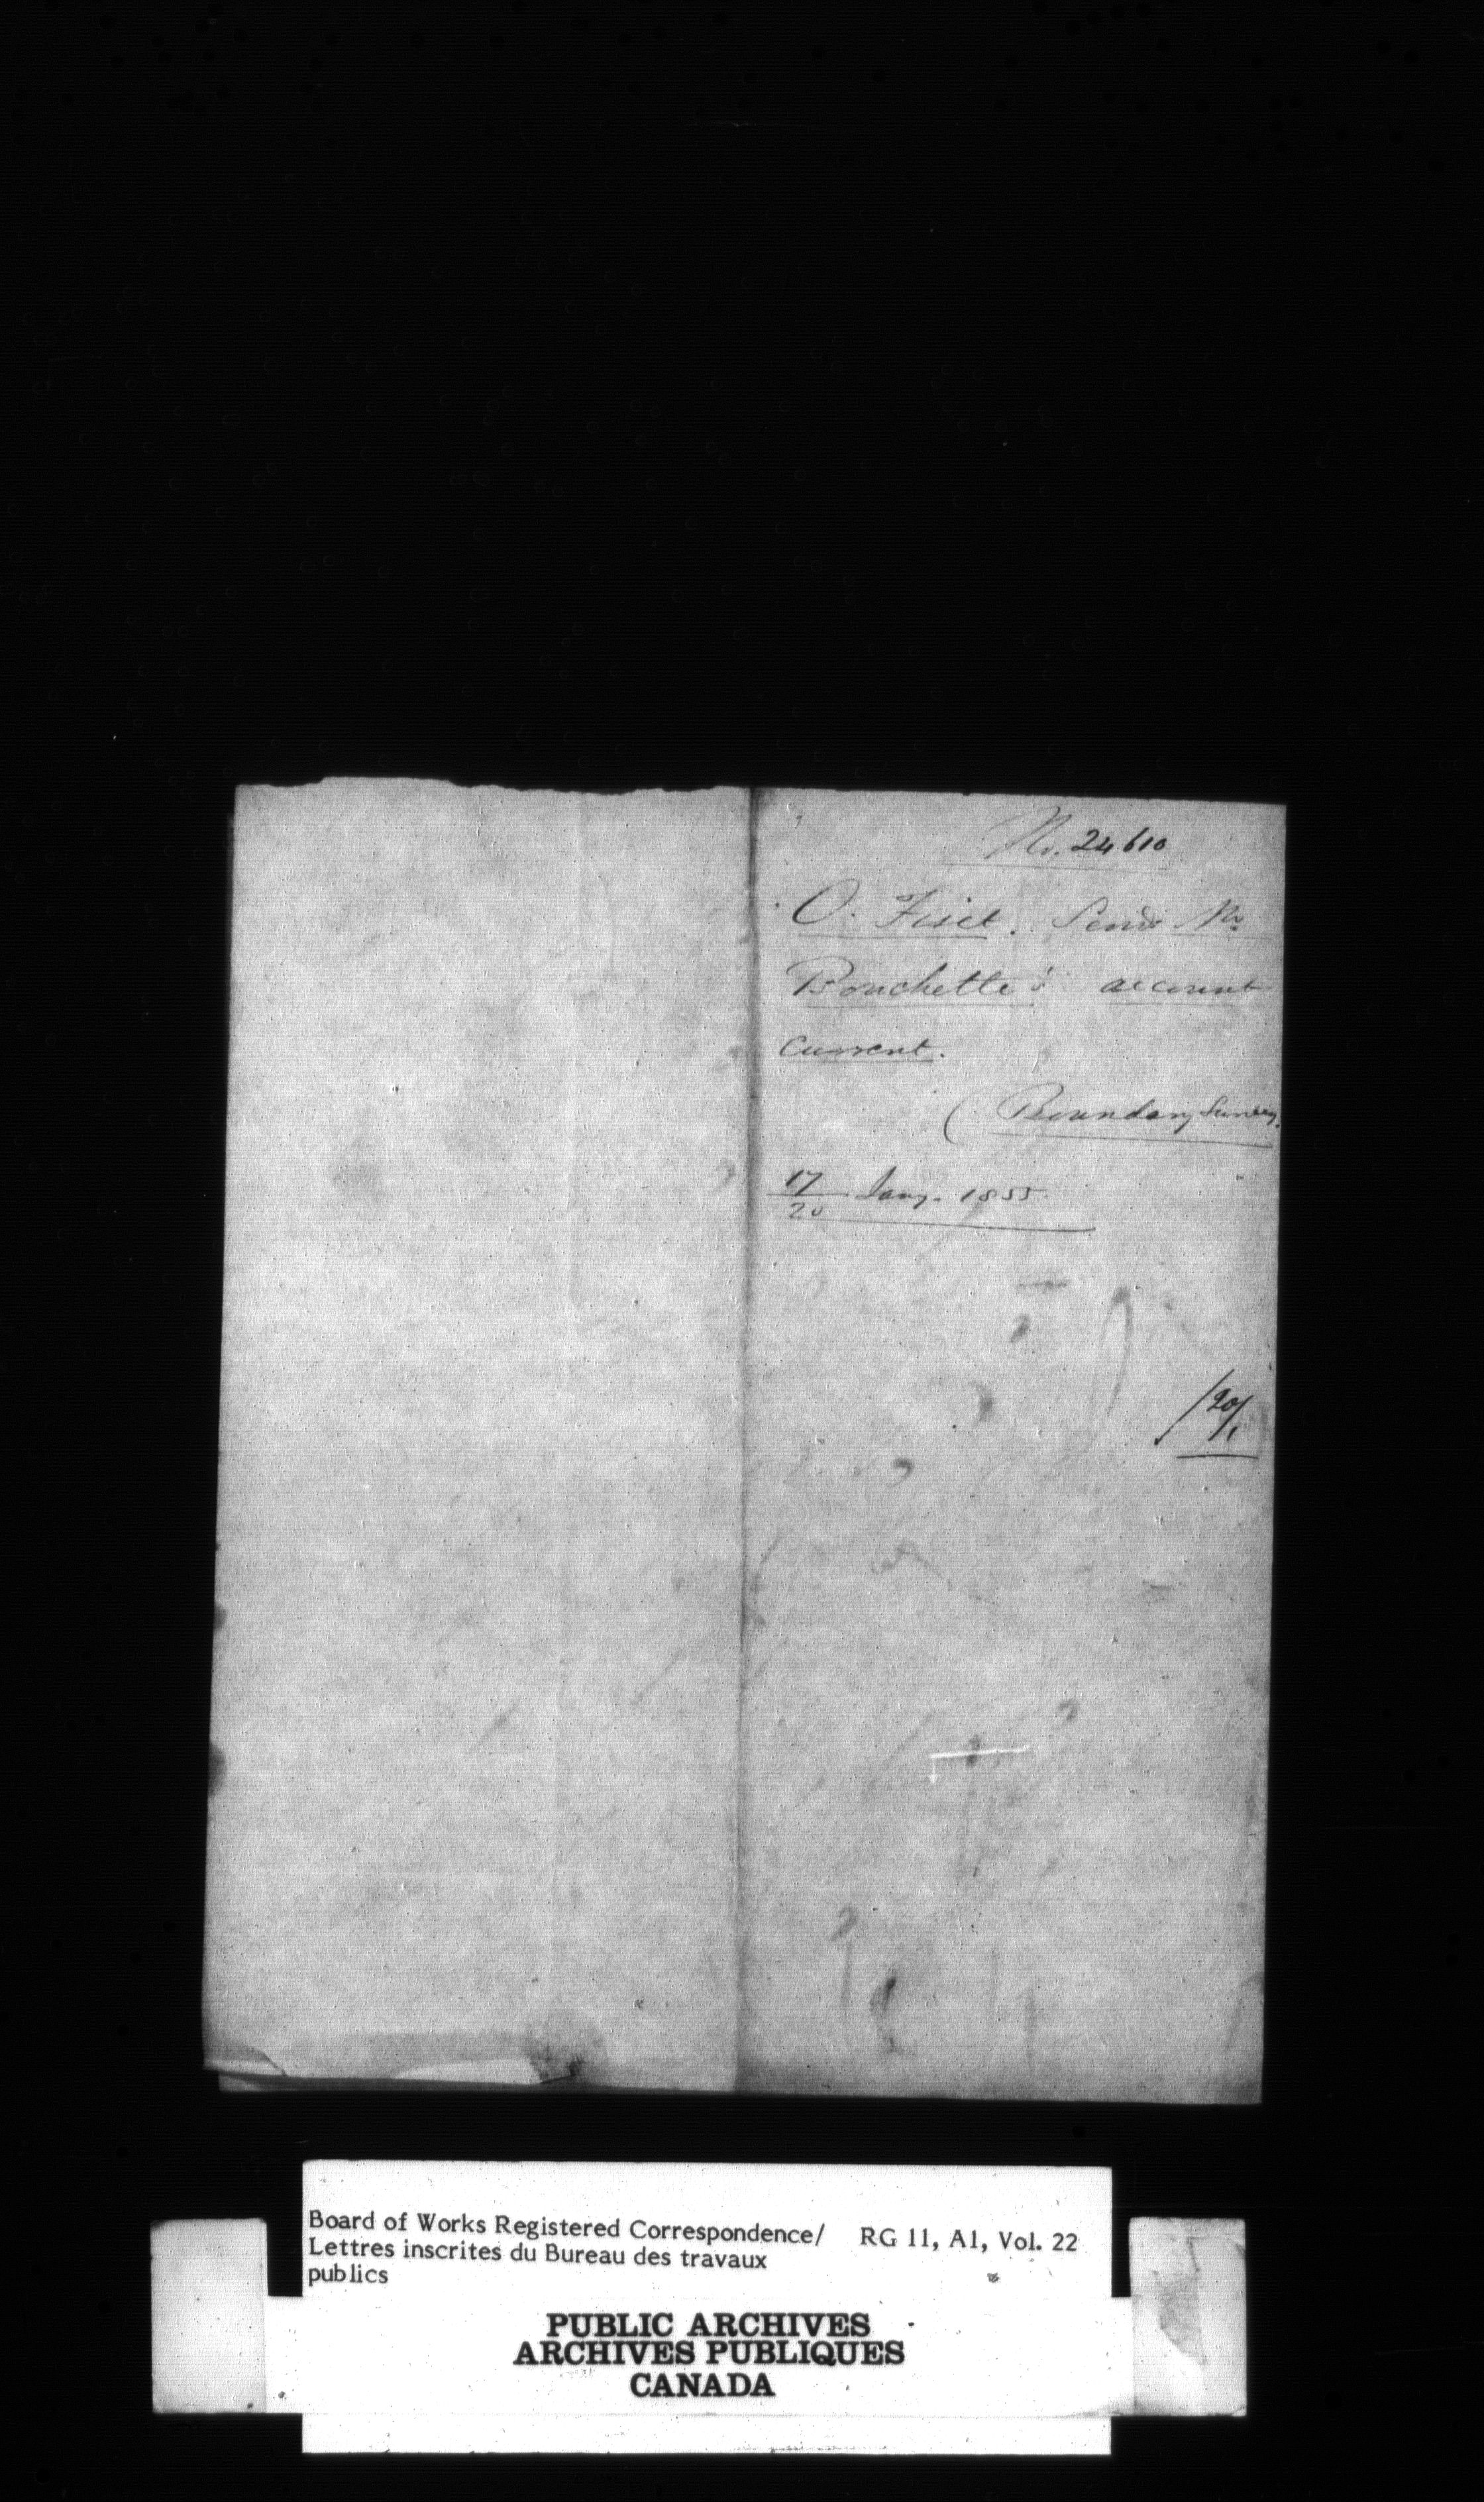 No. 24610
O. Fiset. Sends Mr.
Bouchette's account
Current.
(Boundary Survey.
17/20 Jany. 1855
20/1
Board of Works Registered Correspondence/ RG 11, A1, Vol. 22
Lettres inscrites du Bureau des travaux
publics
PUBLIC ARCHIVES
ARCHIVES PUBLIQUES
CANADA